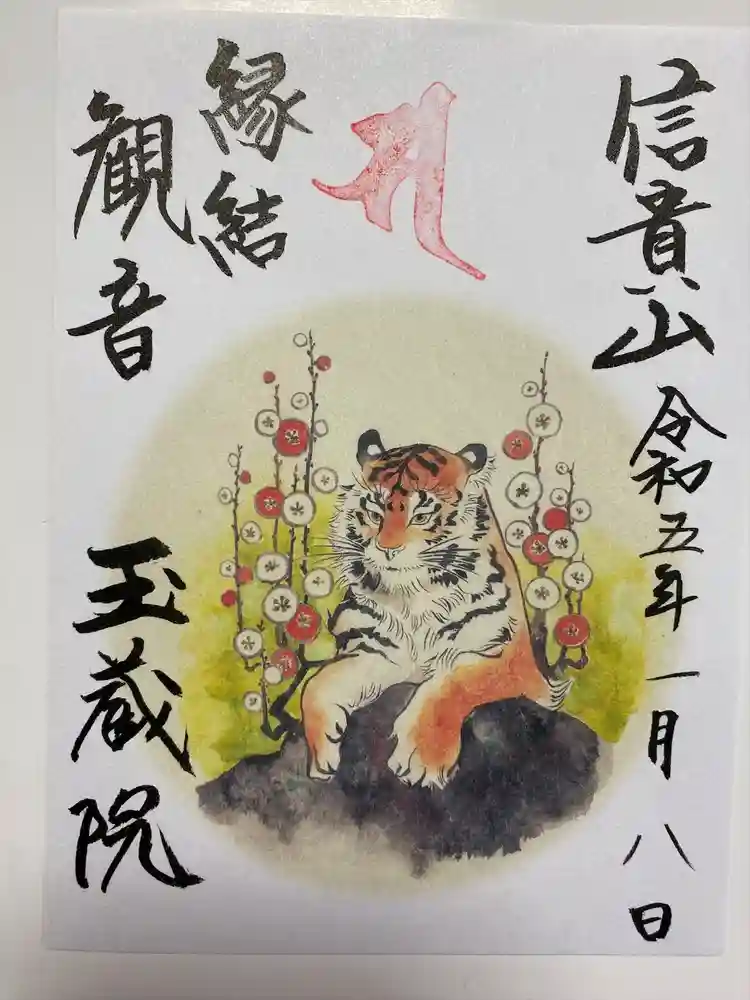 信貴山 令和五年一月八日
縁結
観音
玉蔵院